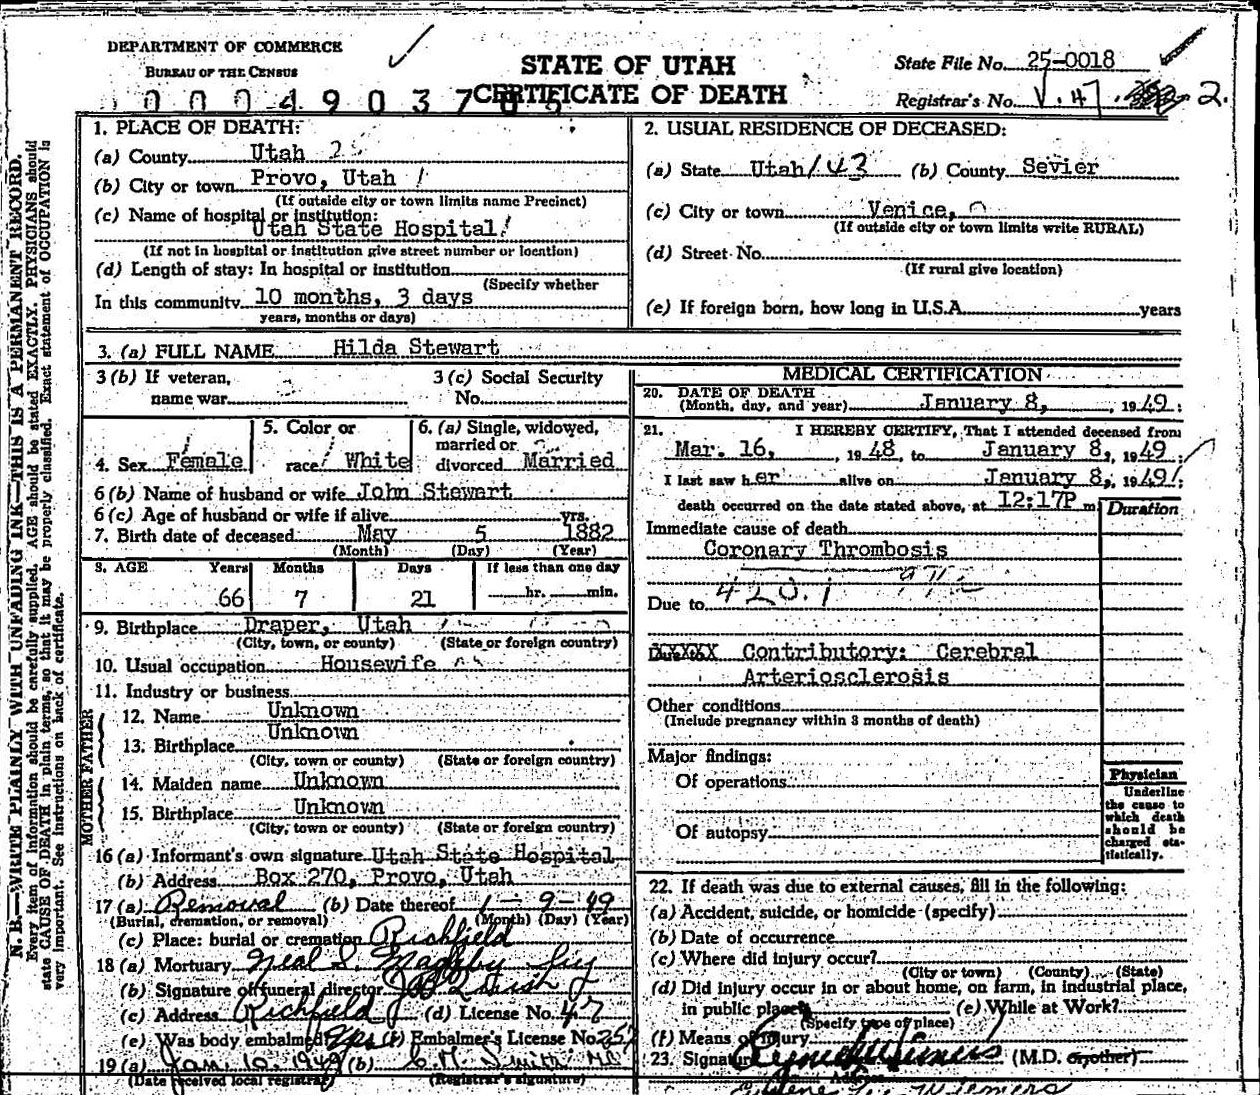 DEPARTMENT OF COMMERCE
BUREAU OF THE CENSUS
STATE OF UTAH
CERTIFICATE OF DEATH
State File No. 25-0018
Registrar's No. V. 47. 2.
N. B.—WRITE PLAINLY WITH UNFADING INK—THIS IS A PERMANENT RECORD.
Every item of information should be carefully supplied. AGE should be stated EXACTLY. PHYSICIANS should
state CAUSE OF DEATH in plain terms, so that it may be properly classified. Exact statement of OCCUPATION is
very important. See instructions on back of certificate.
1. PLACE OF DEATH:
(a) County Utah
(b) City or town Provo, Utah
(If outside city or town limits name Precinct)
(c) Name of hospital or institution:
Utah State Hospital
(If not in hospital or institution give street number or location)
(d) Length of stay: In hospital or institution
(Specify whether
In this community 10 months, 3 days
years, months or days)
2. USUAL RESIDENCE OF DECEASED:
(a) State Utah/ 43 (b) County Sevier
(c) City or town Venice,
(If outside city or town limits write RURAL)
(d) Street No.
(If rural give location)
(e) If foreign born, how long in U.S.A. years
3. (a) FULL NAME Hilda Stewart
3 (b) If veteran,
name war
3 (c) Social Security
No.
4. Sex Female
5. Color or
race White
6. (a) Single, widowed,
married or
divorced Married
6 (b) Name of husband or wife John Stewart
6 (c) Age of husband or wife if alive yrs.
7. Birth date of deceased May 5 1882
(Month) (Day) (Year)
8. AGE Years Months Days If less than one day
66 7 21 hr. min.
9. Birthplace Draper, Utah
(City, town, or county) (State or foreign country)
10. Usual occupation Housewife
11. Industry or business
FATHER
12. Name Unknown
13. Birthplace Unknown
(City, town or county) (State or foreign country)
MOTHER
14. Maiden name Unknown
15. Birthplace Unknown
(City, town or county) (State or foreign country)
16 (a) Informant's own signature Utah State Hospital
(b) Address Box 270, Provo, Utah
17 (a) Removal (b) Date thereof 1 - 9 - 49
(Burial, cremation, or removal) (Month) (Day) (Year)
(c) Place: burial or cremation Richfield
18 (a) Mortuary Neal S. Magleby
(b) Signature of funeral director
(c) Address Richfield (d) License No. 47
(e) Was body embalmed Yes (f) Embalmer's License No. 257
19 (a) Jan. 10, 1949 (b) C. M. Smith MD
(Date received local registrar) (Registrar's signature)
MEDICAL CERTIFICATION
20. DATE OF DEATH
(Month, day, and year) January 8, , 1949;
21. I HEREBY CERTIFY, That I attended deceased from
Mar. 16, , 1948, to January 8, 1949;
I last saw her alive on January 8, 1949;
death occurred on the date stated above, at 12:17P m.
Duration
Immediate cause of death
Coronary Thrombosis
Due to 420.1
XXXXX Contributory: Cerebral
Arteriosclerosis
Other conditions
(Include pregnancy within 3 months of death)
Major findings:
Of operations
Of autopsy
Physician
Underline
the cause to
which death
should be
charged sta-
tistically.
22. If death was due to external causes, fill in the following:
(a) Accident, suicide, or homicide (specify)
(b) Date of occurrence
(c) Where did injury occur?
(City or town) (County) (State)
(d) Did injury occur in or about home, on farm, in industrial place,
in public place (e) While at Work?
(Specify type of place)
(f) Means of injury
23. Signature (M.D. or other)
Address
Wiemers